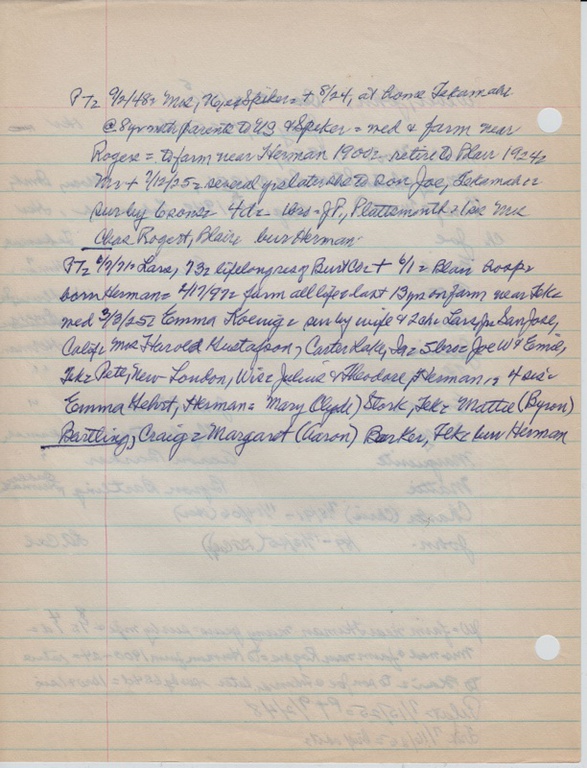 PTz 9/2/48 = Mrs, 76, = + 8/24, at home Tekamah
@ 8 yr with parents to US & Spiker = med & farm near
Rogers = to farm near Herman 1900 = retire to Blair 1924 =
Mr + 7/12/25 = several yrs later she to son Joe, Tekamah =
sur by 6 sons = 4 d = 1 bro = J.P., Plattsmouth = 1 sis Mrs
Chas Rogert, Blair = bur Herman.
PTz 6/7/71 = Lars, 73 = lifelong res of Burt Co = + 6/1 = Blair hosp =
born Herman = 2/17/97 = farm all life = last 13 yr on farm near Tek =
med 3/3/25 = Emma Koenig = sur by wife & 2 ch = Lars, Jr San Jose,
Calif = Mrs Harold Gustafson, Carter Lake, Ia = 5 bro = Joe W & Emil,
Tek = Pete, New London, Wis = Julius & Theodore, Herman, = 4 sis =
Emma Herman = Mary (Clyde) Stork, Tek = Mattie (Byron)
Bartling, Craig = Margaret (Aaron) Barker, Tek = bur Herman